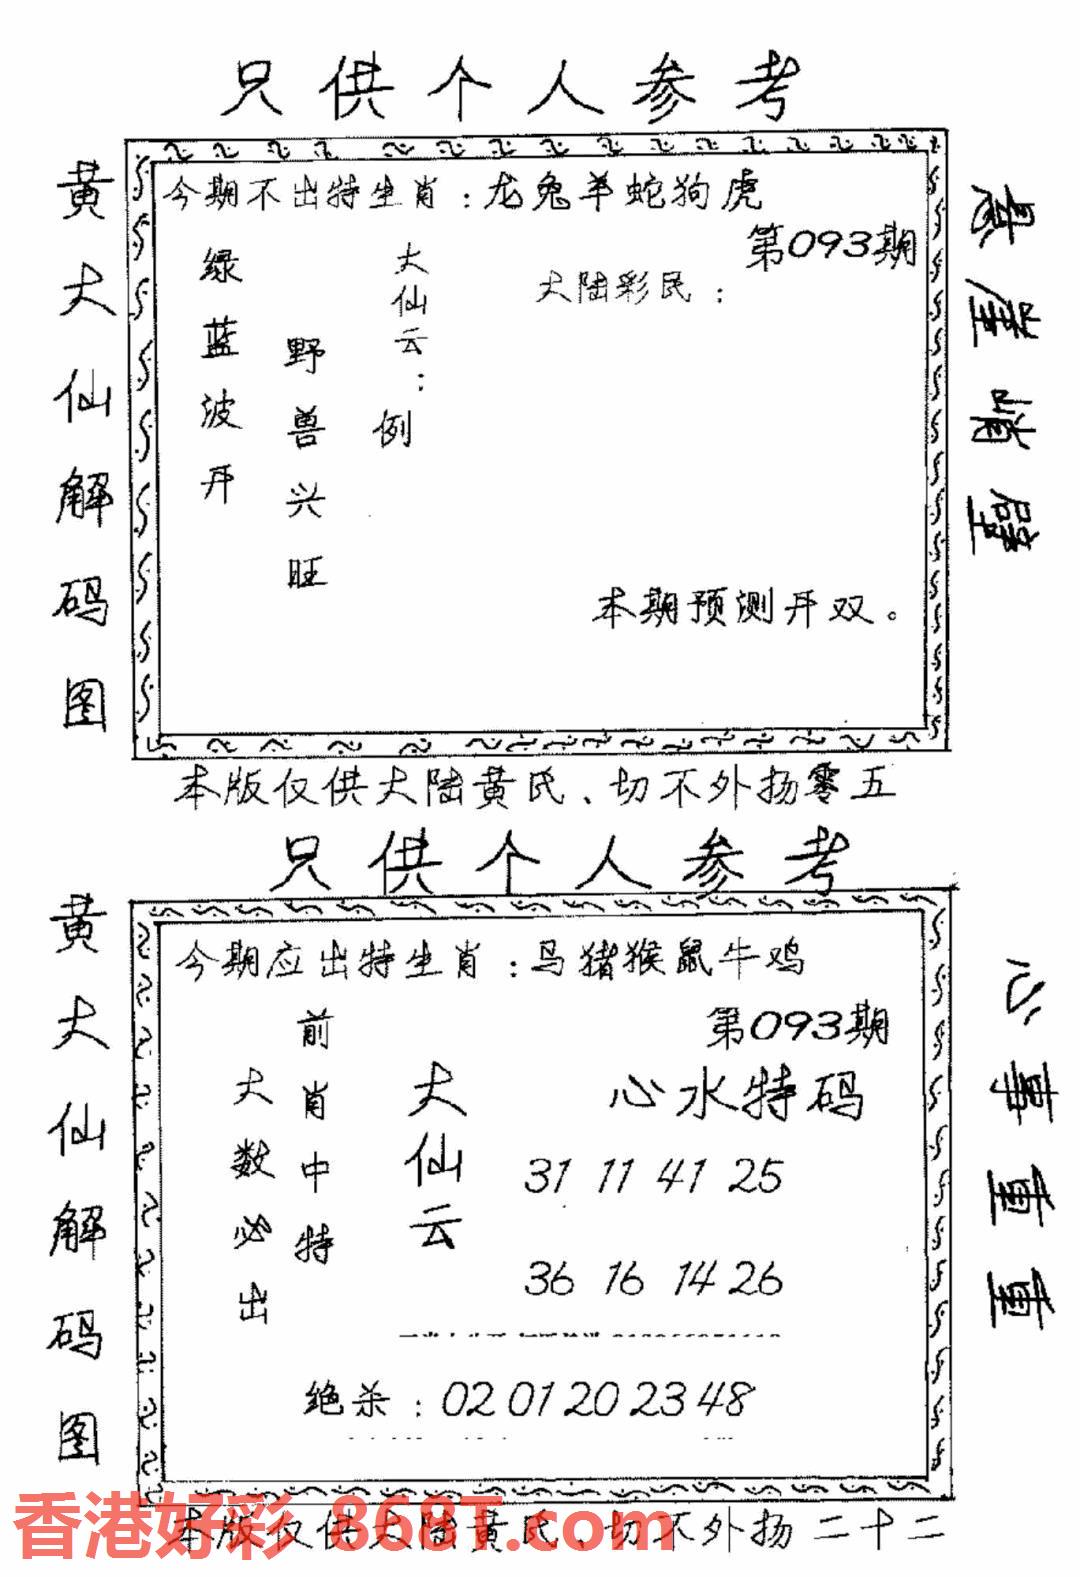 只供个人参考
黄大仙解码图
今期不出特生肖：龙兔羊蛇狗虎
第093期
大陆彩民：
大仙云：
例
野兽兴旺
绿蓝波开
本期预测开双。
悬崖峭壁
本版仅供大陆黄氏、切不外扬零五
只供个人参考
黄大仙解码图
今期应出特生肖：马猪猴鼠牛鸡
第093期
心水特码
31 11 41 25
36 16 14 26
大仙云
前肖中特
大数必出
绝杀：02 01 20 23 48
心事重重
本版仅供大陆黄氏、切不外扬二十二
香港好彩 868T.com